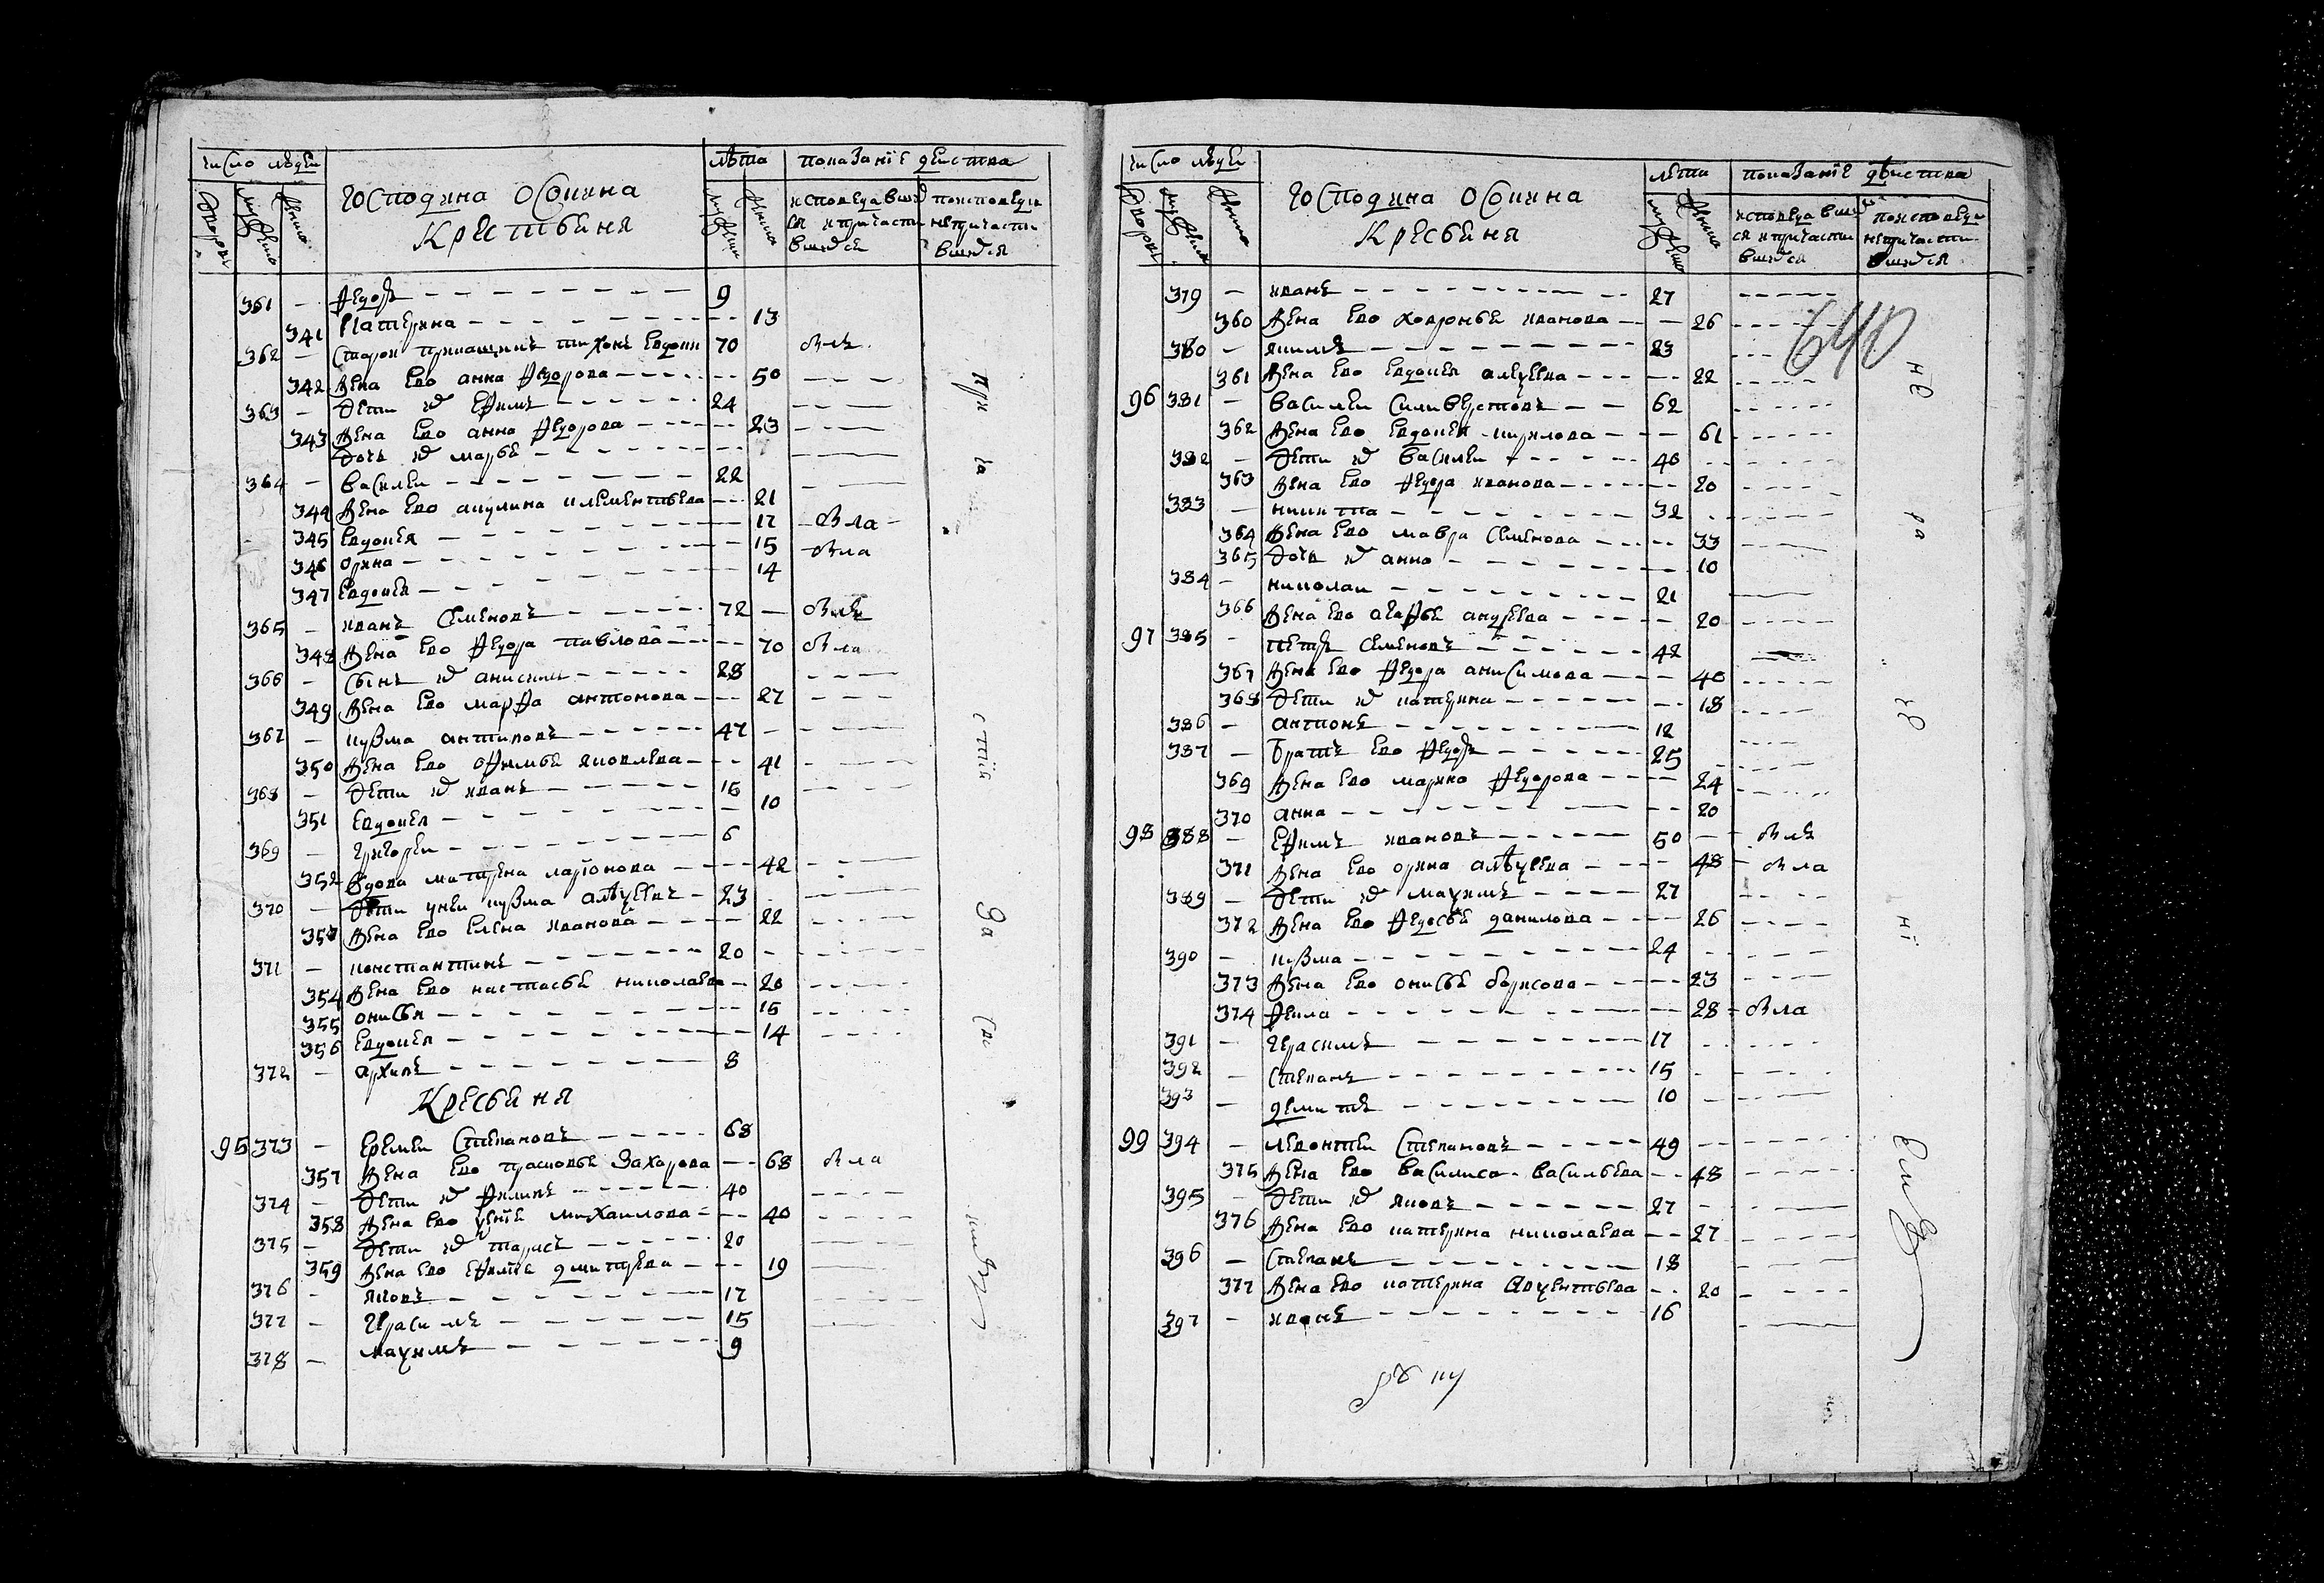 число людеи
лѣта
показанїе деиства
господина осокина
крестьяня
дворы
мужеска
женска
мужеска
женска
исповедавшие
ся и причасти
вшиеся
по исповеди
непричасти
вшиеся
361 — Федоръ 9
341 Катерина 13
362 — Старой приказщикъ Тихонъ 70 былъ
342 Жена ево Анна Федорова 50
363 — Дети их Ефимъ 24
343 Жена ево Анна Федорова 23
Дочь их Марья
364 — Василеи 22
344 Жена ево Акулина Клементьева 21
345 Евдокея 17 была
346 Орина 15 была
347 Евдокея 14
365 — Иванъ Семеновъ 72 былъ
348 Жена ево Федора Павлова 70 была
366 — Сынъ их Анисимъ 28
349 Жена ево Марфа Антонова 27
367 — Кузма Антиповъ 47
350 Жена ево Офимья Яковлева 41
368 — Дети их Иванъ 16
351 Евдокея 10
369 — Григореи 6
352 Вдова Матрена Ларїонова 42
370 — Дѣти у неи Кузма Алѣѯеевъ 23
353 Жена ево Елена Иванова 22
371 — Констентинъ 20
354 Жена ево Настасья Николаева 20
355 Онисья 15
356 Евдокея 14
372 — Архипъ 8
Кресьяня
95 373 — Еремеи Степановъ 68
357 Жена ево Прасковья Захарова 68 была
374 — Дети их Филипъ 40
358 Жена ево Ѯенїя Михаилова 40
375 — Дети их Тарасъ 20
359 Жена ево Ефимїя Дмитрева 19
376 — Яковъ 17
377 — Герасимъ 15
378 — Маѯимъ 9
число людеи
лѣта
показанїе дѣиства
господина осокина
кресьяня
дворы
мужеска
женска
мужеска
женска
исповедавшие
ся и причасти
вшиеся
по исповеди
непричасти
вшиеся
640
379 — Иванъ 27
360 Жена ево Ховронья Иванова 26
380 — Якимъ 23
361 Жена ево Евдокея Алеѯеева 22
96 381 — Василеи Силиверстовъ 62
362 Жена ево Евдокея Кирилова 61
382 — Дети их Василеи 40
363 Жена ево Федора Иванова 20
383 — Никита 32
364 Жена ево Мавра Семенова 33
365 Дочь их Анна 10
384 — Николаи 21
366 Жена ево Агафья Андреева 20
97 385 — Петръ Семеновъ 42
367 Жена ево Федора Анисимова 40
368 Дети их Катерина 18
386 — Антонъ 12
387 — Братъ ево Федоръ 25
369 Жена ево Марина Федорова 24
370 Анна 20
98 388 — Ефимъ Ивановъ 50 былъ
371 Жена ево Орина Алѣѯеева 48 была
389 — Дети их Маѯимъ 27
372 Жена ево Федосья Данилова 26
390 — Кузма 24
373 Жена ево Онисья Борисова 23
374 Фекла 28 была
391 — Герасимъ 17
392 — Степанъ 15
393 — 10
99 394 — Левонтеи Степановъ 49
375 Жена ево Василиса Васильева 48
395 — Дети их Яковъ 27
376 Жена ево Катерина Николаева 27
396 — Степанъ 18
377 Жена ево Катерина 20
397 — Иванъ 16